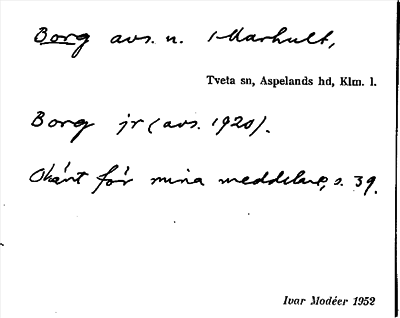 Borg avs. n. Marhult,
Tveta sn, Aspelands hd, Klm. l.
Borg jr (avs. 1920).
Okänt för mina meddelare, s. 39.
Ivar Modéer 1952